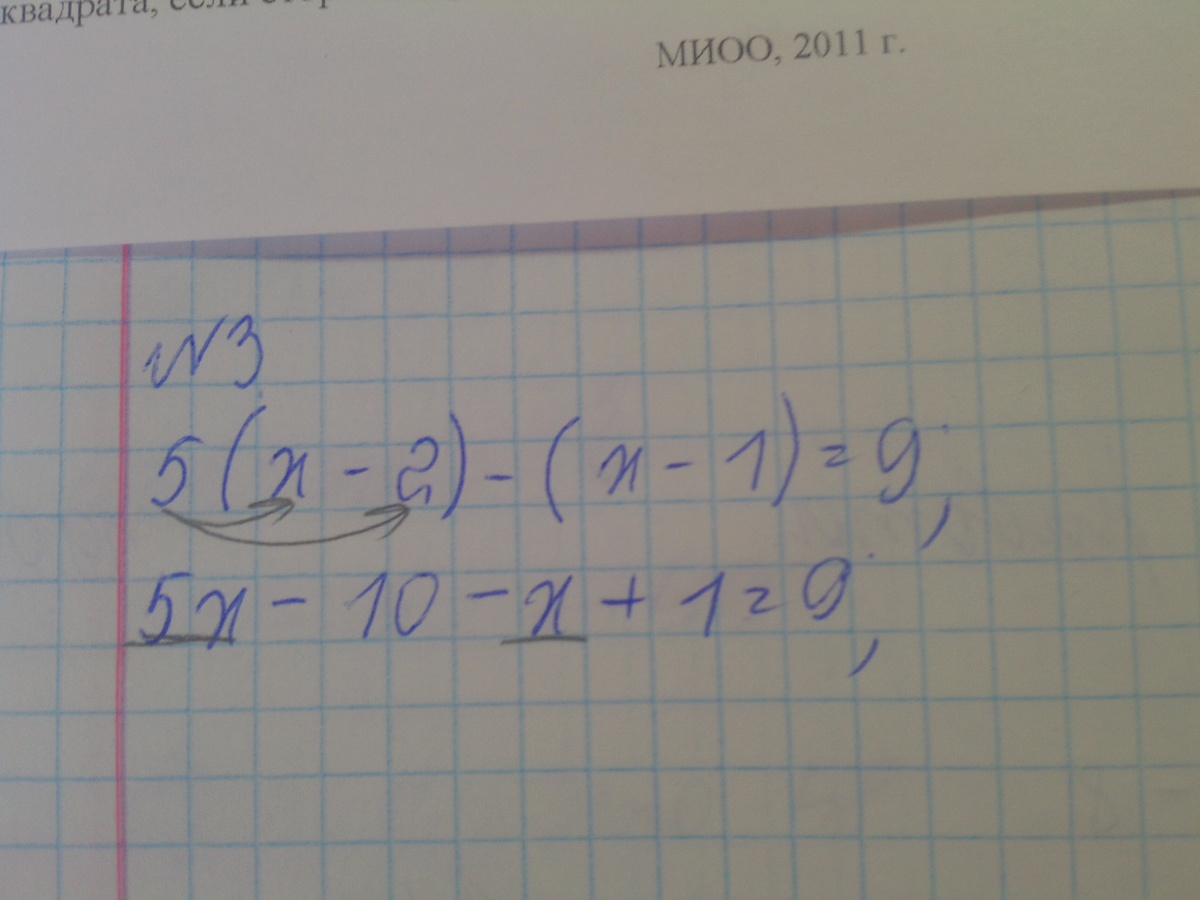 квадрата, если
МИОО, 2011 г.
№3
5(x - 2) - (x - 1) = 9;
5x - 10 - x + 1 = 9;